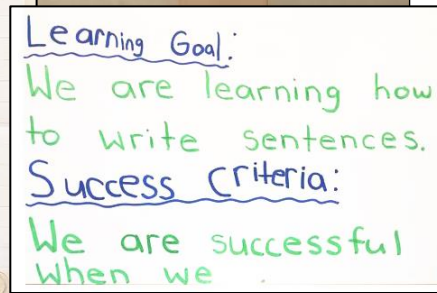 Learning Goal:
We are learning how
to write sentences.
Success Criteria:
We are successful
when we .